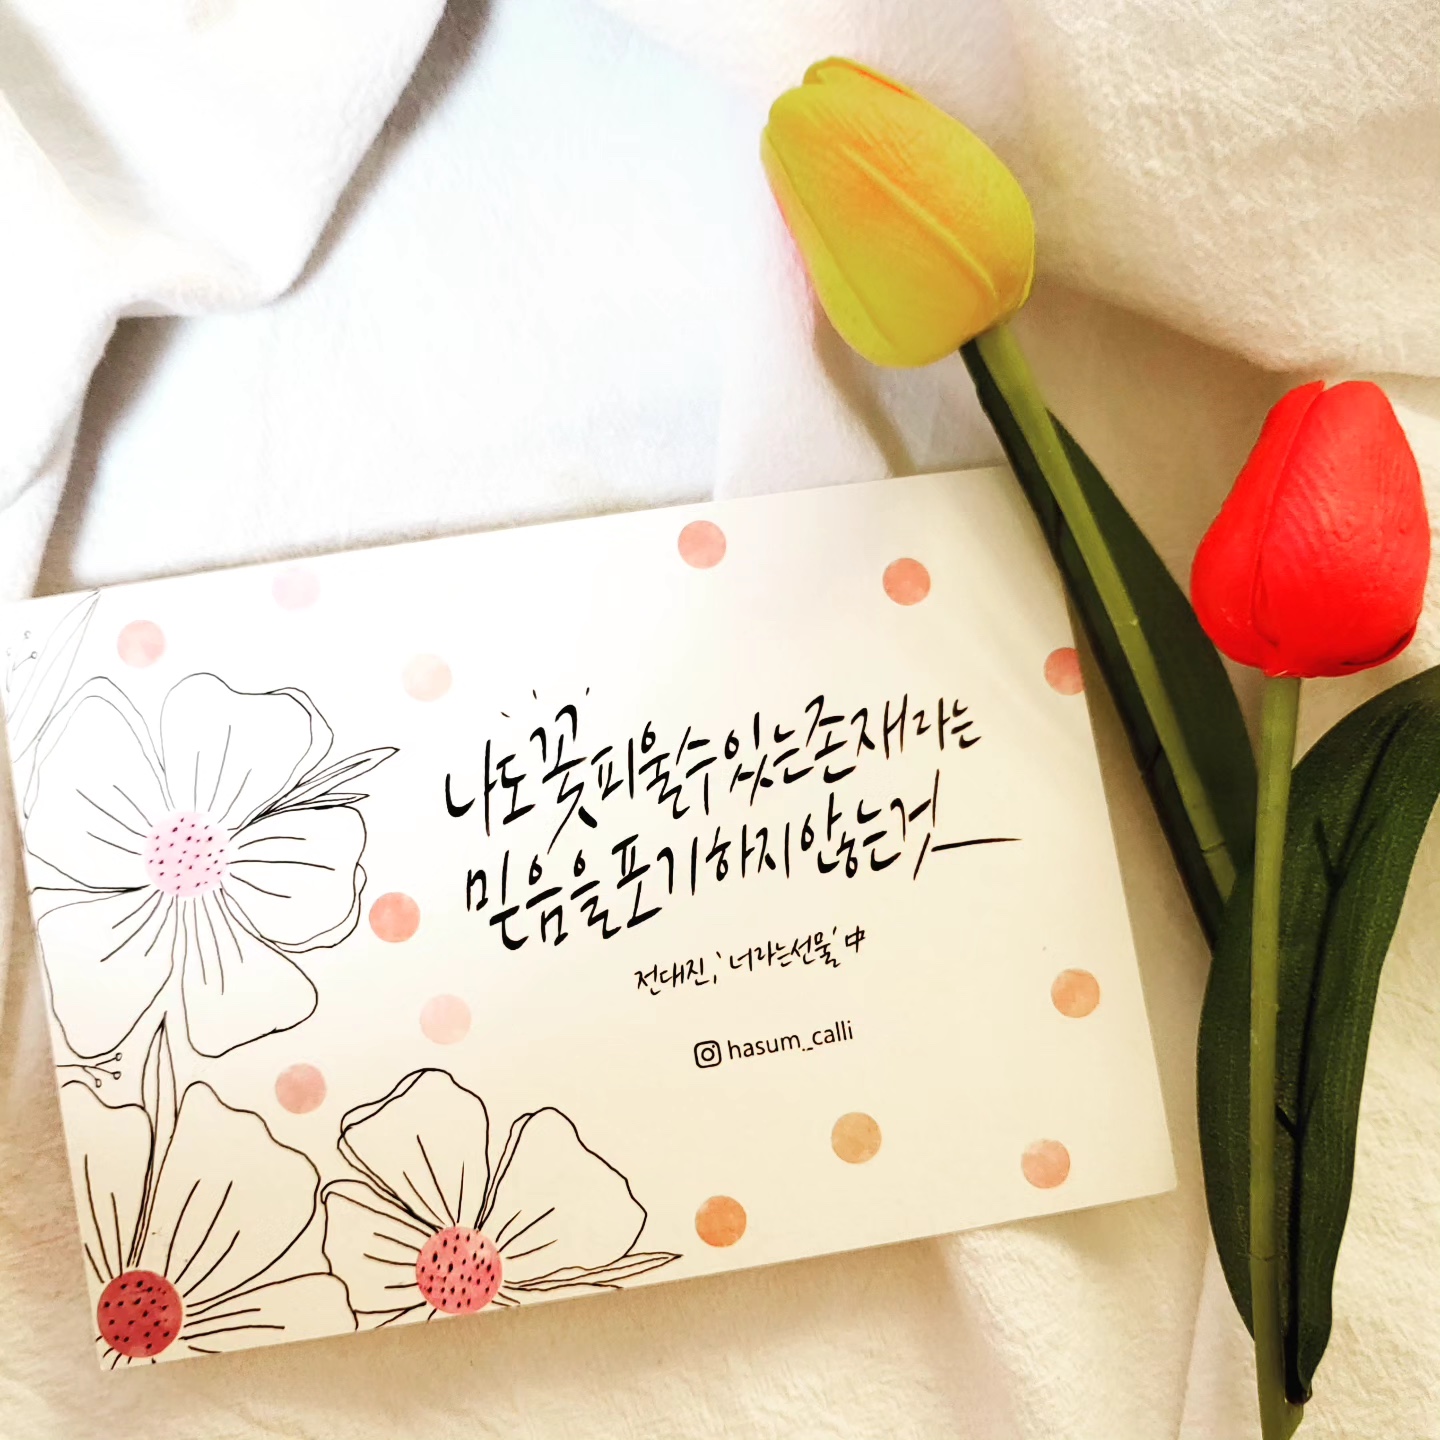 나도 꽃 피울 수 있는 존재라는
믿음을 포기하지 않는 것
전대진, '너라는 선물' 中
hasum_calli